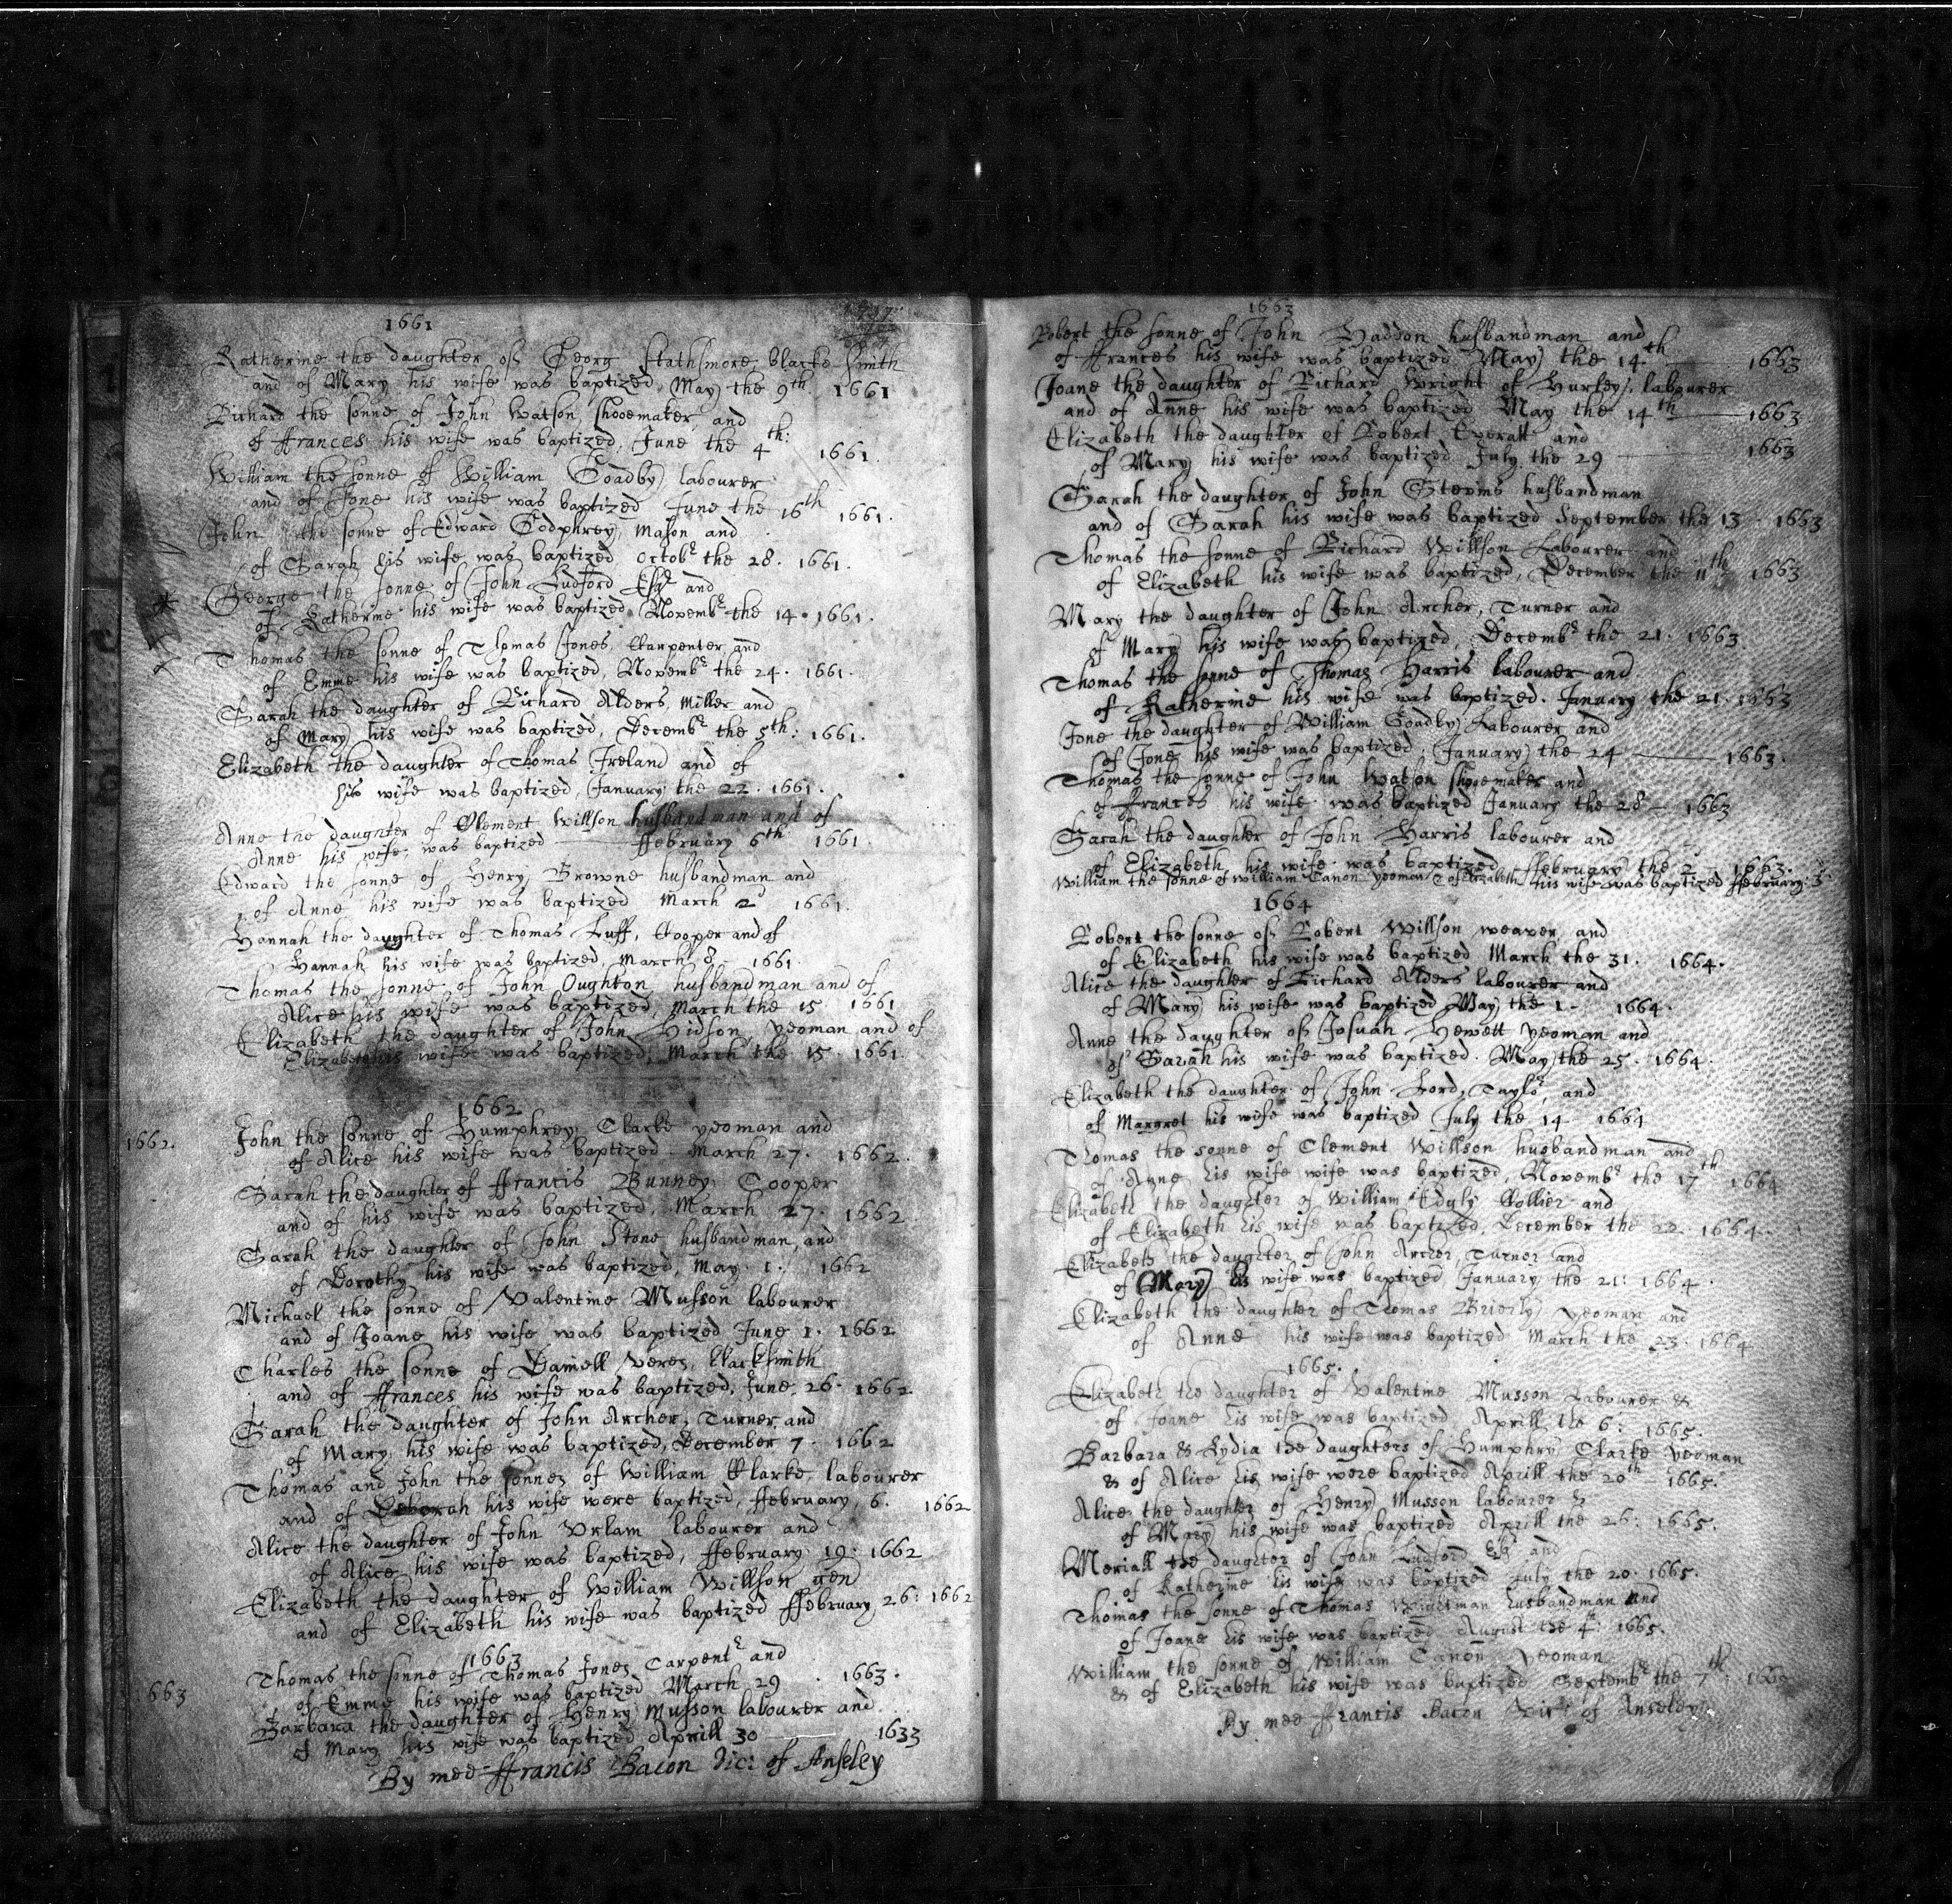 1661
Katherine the daughter of Georg Stathsmore, blacke smith
and of Mary his wife was baptized, May the 9th 1661
Richard the sonne of John Watson shooemaker, and
of ffrances his wife was baptized, June the 4th: 1661.
William the sonne of William Goadby labourer
and of Jone his wife was baptized June the 16th 1661.
John the sonne of Edward Godphrey, Mason and
of Sarah his wife was baptized, Octobr the 28. 1661.
George the sonne of John Ludford Esqr and
of Katherine his wife was baptized, Novembr the 14. 1661.
Thomas the sonne of Thomas Jones, Carpenter, and
of Emme his wife was baptized, Novembr the 24. 1661.
Sarah the daughter of Richard Alders, Miller and
of Mary his wife was baptized, Decembr the 5th: 1661.
Elizabeth the daughter of Thomas Ireland and of
his wife was baptized, January the 22. 1661.
Anne the daughter of Clement Willson husbandman and of
Anne his wife, was baptized ffebruary 6th 1661.
Edward the sonne of Henry Browne husbandman and
of Anne his wife was baptized March 2d 1661.
Hannah the daughter of Thomas Luff, Cooper and of
Hannah his wife was baptized, March 8. 1661.
Thomas the sonne of John Oughton husbandman and of
Alice his wife was baptized, March the 15 1661
Elizabeth the daughter of John Hidson, yeoman and of
Elizabeth his wife was baptized, March the 15. 1661.
1662
1662. John the sonne of Humphrey Clarke yeoman and
of Alice his wife was baptized. March 27. 1662.
Sarah the daughter of ffrancis Bunney, Cooper
and of his wife was baptized, March 27. 1662
Sarah the daughter of John Stone husbandman, and
of Dorothy his wife was baptized, May 1. 1662
Michael the sonne of Valentine Musson labourer
and of Joane his wife was baptized June 1. 1662
Charles the sonne of Daniell Veres, blacksmith
and of ffrances his wife was baptized, June, 26. 1662
Sarah the daughter of John Archer, Turner and
of Mary his wife was baptized, December 7. 1662
Thomas and John the sonnes of William Clarke, labourer
and of Deborah his wife were baptized, ffebruary, 6. 1662
Alice the daughter of John Urlam labourer and
of Alice his wife was baptized, ffebruary 19: 1662
Elizabeth the daughter of William Willson gen
and of Elizabeth his wife was baptized ffebruary 26: 1662
1663
Thomas the sonne of Thomas Jones Carpentr and
663 of Emme his wife was baptized March 29 1663.
Barbara the daughter of Henry Musson labourer and
of Mary his wife was baptized Aprill 30 1633
By mee ffrancis Bacon Vic: of Anseley
1663
Robert the sonne of John Haddon husbandman and
of ffrances his wife was baptized May the 14th 1663
Joane the daughter of Richard Wright of Hurley, labourer
and of Anne his wife was baptized May the 14th 1663
Elizabeth the daughter of Robert Everatt and
of Mary his wife was baptized July the 29 1663
Sarah the daughter of John Stevins husbandman
and of Sarah his wife was baptized September the 13. 1663
Thomas the sonne of Richard Willson Labourer and
of Elizabeth his wife was baptized, December the 11th 1663
Mary the daughter of John Archer, Turner and
of Mary his wife was baptized, Decembr the 21. 1663
Thomas the sonne of Thomas Harris labourer and
of Katherine his wife was baptized. January the 21. 1663
Jone the daughter of William Goadby Labourer and
of Jone his wife was baptized, January the 24 1663.
Thomas the sonne of John Watson shooemaker and
of ffrances his wife was baptized January the 28 1663
Sarah the daughter of John Harris labourer and
of Elizabeth his wife was baptized ffebruary the 2d 1663.
William the sonne of William Canon yeoman & of Elizabeth his wife was baptized ffebruary. 3
1664
Robert the sonne of Robert Willson weaver, and
of Elizabeth his wife was baptized March the 31. 1664.
Alice the daughter of Richard Alders labourer and
of Mary his wife was baptized May the 1 1664.
Anne the daughter of Josuah Hewett yeoman and
of Sarah his wife was baptized. May the 25. 1664.
Elizabeth the daughter of John Lord, Taylr, and
of Margret his wife was baptized July the 14 1664
Thomas the sonne of Clement Willson husbandman and
of Anne his wife wife was baptized, Novembr the 17th 1664
Elizabeth the daughter of William Edgly Collier and
of Elizabeth his wife was baptized, December the 22. 1664.
Elizabeth the daughter of John Archer, Turner and
of Mary his wife was baptized January the 21: 1664.
Elizabeth the daughter of Thomas Brierly yeoman and
of Anne his wife was baptized March the 23. 1664
1665.
Elizabeth the daughter of Valentine Musson Labourer &
of Joane his wife was baptized Aprill the 6: 1665.
Barbara & Lydia the daughters of Humphry Clarke yeoman
& of Alice his wife were baptized Aprill the 20th 1665.
Alice the daughter of Henry Musson labourer &
of Mary his wife was baptized Aprill the 26: 1665.
Meriall the daughter of John Ludford Esqr and
of Katherine his wife was baptized July the 20. 1665.
Thomas the sonne of Thomas Wightman husbandman and
of Joane his wife was baptized August the 4th 1665.
William the sonne of William Canon yeoman
& of Elizabeth his wife was baptized Septembr the 7th 1665
By mee ffrancis Bacon Vicr of Anseley